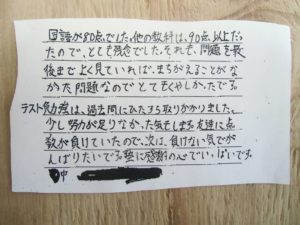 国語が80点でした。他の教科は、90点以上だっ
たので、とても残念でした。それも、問題を最
後まで よく見ていれば、まちがえることがな
かった問題なのでとてもくやしかったです。
テスト勉強は、過去問にひたすら取りかかりました。
少し努力が足りなかった気もします。友達に点
数が負けていたので、次は、負けない気でが
んばりたいです。塾に感謝の心でいっぱいです。
中